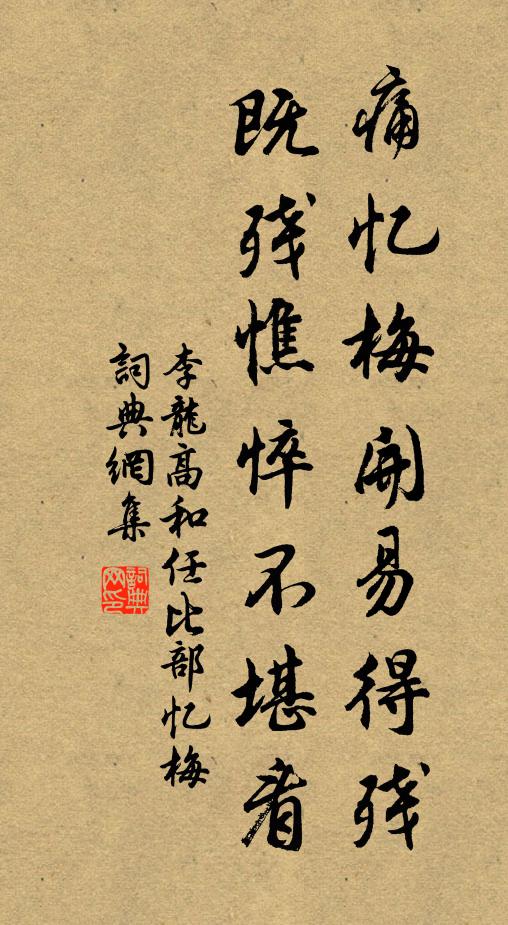 痛忆梅開易得残
既残憔悴不堪看
李龍高和任比部忆梅
詞典網集
詞典网印